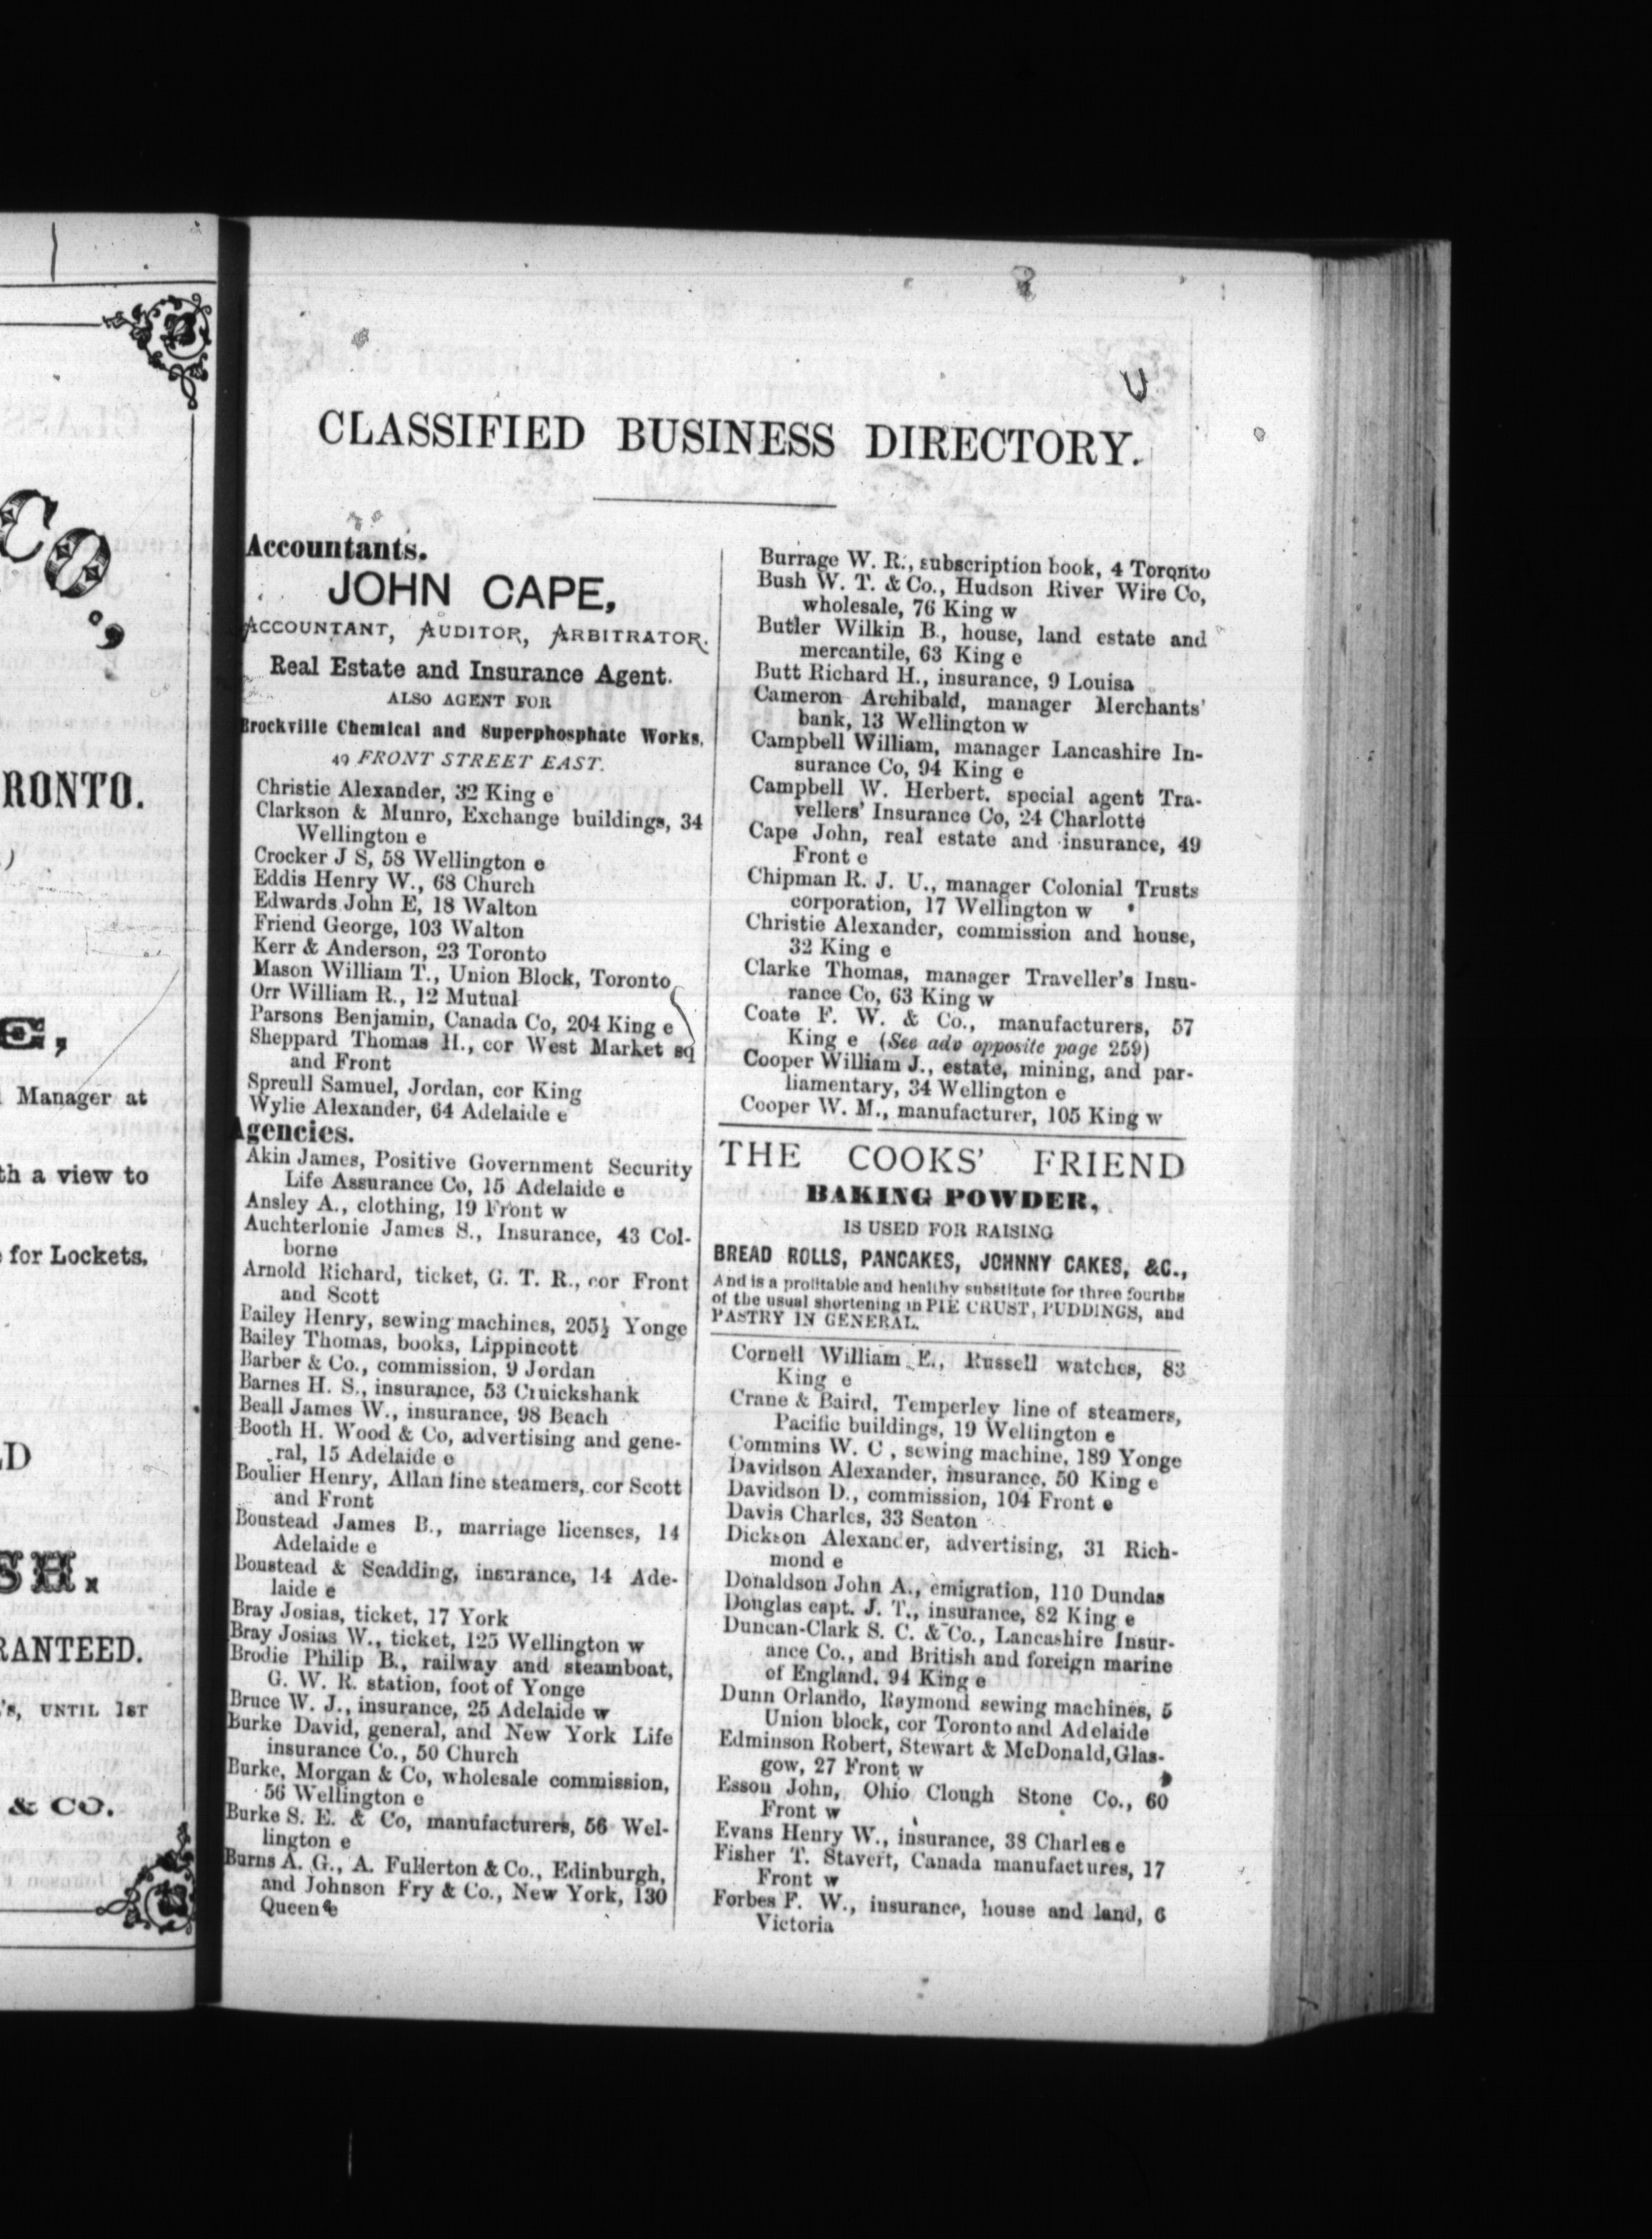 CO.,
RONTO.
E,
Manager at
th a view to
for Lockets.
SH.
RANTEED.
's, UNTIL 1ST
& CO.
CLASSIFIED BUSINESS DIRECTORY.
Accountants.
JOHN CAPE,
ACCOUNTANT, AUDITOR, ARBITRATOR.
Real Estate and Insurance Agent.
ALSO AGENT FOR
Brockville Chemical and Superphosphate Works,
49 FRONT STREET EAST.
Christie Alexander, 32 King e
Clarkson & Munro, Exchange buildings, 34
Wellington e
Crocker J S, 58 Wellington e
Eddis Henry W., 68 Church
Edwards John E, 18 Walton
Friend George, 103 Walton
Kerr & Anderson, 23 Toronto
Mason William T., Union Block, Toronto
Orr William R., 12 Mutual
Parsons Benjamin, Canada Co, 204 King e
Sheppard Thomas H., cor West Market sq
and Front
Spreull Samuel, Jordan, cor King
Wylie Alexander, 64 Adelaide e
Agencies.
Akin James, Positive Government Security
Life Assurance Co, 15 Adelaide e
Ansley A., clothing, 19 Front w
Auchterlonie James S., Insurance, 43 Col-
borne
Arnold Richard, ticket, G. T. R., cor Front
and Scott
Bailey Henry, sewing machines, 205½ Yonge
Bailey Thomas, books, Lippincott
Barber & Co., commission, 9 Jordan
Barnes H. S., insurance, 53 Cruickshank
Beall James W., insurance, 98 Beach
Booth H. Wood & Co, advertising and gene-
ral, 15 Adelaide e
Boulier Henry, Allan line steamers, cor Scott
and Front
Boustead James B., marriage licenses, 14
Adelaide e
Boustead & Scadding, insurance, 14 Ade-
laide e
Bray Josias, ticket, 17 York
Bray Josias W., ticket, 125 Wellington w
Brodie Philip B., railway and steamboat,
G. W. R. station, foot of Yonge
Bruce W. J., insurance, 25 Adelaide w
Burke David, general, and New York Life
insurance Co., 50 Church
Burke, Morgan & Co, wholesale commission,
56 Wellington e
Burke S. E. & Co, manufacturers, 56 Wel-
lington e
Burns A. G., A. Fullerton & Co., Edinburgh,
and Johnson Fry & Co., New York, 130
Queen e
Burrage W. R., subscription book, 4 Toronto
Bush W. T. & Co., Hudson River Wire Co,
wholesale, 76 King w
Butler Wilkin B., house, land estate and
mercantile, 63 King e
Butt Richard H., insurance, 9 Louisa
Cameron Archibald, manager Merchants'
bank, 13 Wellington w
Campbell William, manager Lancashire In-
surance Co, 94 King e
Campbell W. Herbert. special agent Tra-
vellers' Insurance Co, 24 Charlotte
Cape John, real estate and insurance, 49
Front e
Chipman R. J. U., manager Colonial Trusts
corporation, 17 Wellington w
Christie Alexander, commission and house,
32 King e
Clarke Thomas, manager Traveller's Insu-
rance Co, 63 King w
Coate F. W. & Co., manufacturers, 57
King e (See adv opposite page 259)
Cooper William J., estate, mining, and par-
liamentary, 34 Wellington e
Cooper W. M., manufacturer, 105 King w
THE COOKS' FRIEND
BAKING POWDER,
IS USED FOR RAISING
BREAD ROLLS, PANCAKES, JOHNNY CAKES, &C.,
And is a profitable and healthy substitute for three fourths
of the usual shortening in PIE CRUST, PUDDINGS, and
PASTRY IN GENERAL.
Cornell William E., Russell watches, 83
King e
Crane & Baird, Temperley line of steamers,
Pacific buildings, 19 Wellington e
Commins W. C, sewing machine, 189 Yonge
Davidson Alexander, insurance, 50 King e
Davidson D., commission, 104 Front e
Davis Charles, 33 Seaton
Dickson Alexander, advertising, 31 Rich-
mond e
Donaldson John A., emigration, 110 Dundas
Douglas capt. J. T., insurance, 82 King e
Duncan-Clark S. C. & Co., Lancashire Insur-
ance Co., and British and foreign marine
of England, 94 King e
Dunn Orlando, Raymond sewing machines, 5
Union block, cor Toronto and Adelaide
Edminson Robert, Stewart & McDonald, Glas-
gow, 27 Front w
Esson John, Ohio Clough Stone Co., 60
Front w
Evans Henry W., insurance, 38 Charles e
Fisher T. Stavert, Canada manufactures, 17
Front w
Forbes F. W., insurance, house and land, 6
Victoria